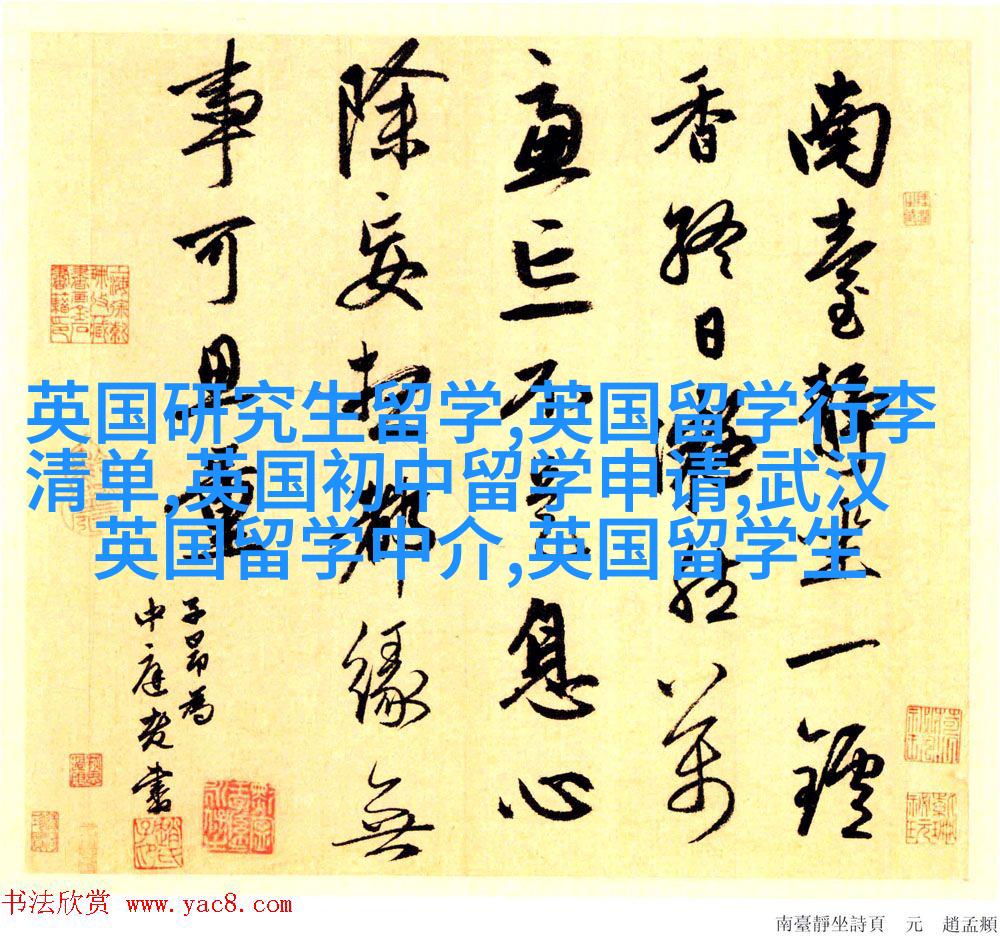 南臺靜坐一鑪
香終日凝然萬
慮亡不是息心
除妄想都緣無
事可思量
子昂為
中庭老書
英国研究生留学,英国留学行李
清单,英国初中留学申请,武汉
英国留学中介,英国留学生
书法欣赏 www.yac8.com
南臺靜坐詩頁 元 趙孟頫